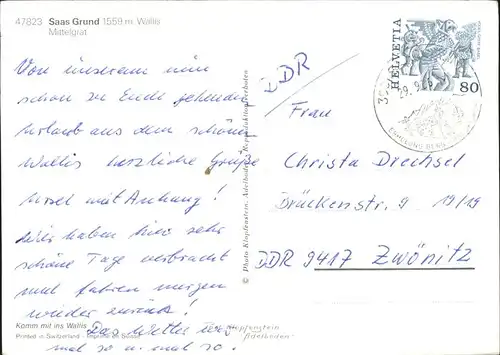 47823 Saas Grund 1559 m. Wallis
Mittelgrat
Von unserem nun
schon zu Ende gehenden
Urlaub aus dem schönen
Wallis herzliche Grüße
mit Anhang!
Wir haben hier sehr
schöne Tage verbracht
und fahren morgen
wieder zurück!
Das Wetter war
mal so u. mal so.
Komm mit ins Wallis
Printed in Switzerland - Imprimé en Suisse
© Photo Klopfenstein, Adelboden. Reproduktion verboten
Klopfenstein
Adelboden
HELVETIA
80
DDR
Frau
Christa Drechsel
Brückenstr. 9 19/19
DDR 9417 Zwönitz